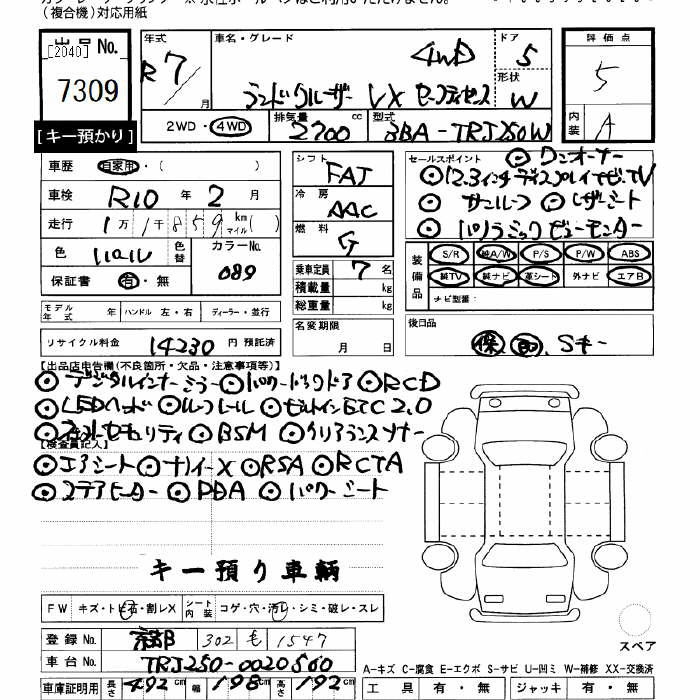 (複合機)対応用紙
出品No.
[2040]
7309
[キー預かり]
年式 R7/ 月
車名・グレード 4WD
ランドクルーザー VX セーフティセンス
ドア 5
形状 W
評価点 5
内装 A
2WD・4WD
排気量 2700 cc
型式 3BA-TRJ250W
車歴 自家用・( )
車検 R10 年 2 月
走行 1万 1千 859 km マイル( )
色 パール 色替 カラーNo. 089
保証書 有・無
シフト FAT
冷房 AAC
燃料 G
乗車定員 7 名
積載量 kg
総重量 kg
セールスポイント ⊙ワンオーナー
⊙12.3インチディスプレイナビTV
⊙サンルーフ ⊙レザーシート
⊙パノラミックビューモニター
装備品 S/R 純A/W P/S P/W ABS
純TV 純ナビ 革シート 外ナビ エアB
ナビ型番:
モデル年式 年 ハンドル 左・右 ディーラー・並行
名変期限 月 日
後日品 保 取 Sキー
リサイクル料金 14230 円 預託済
【出品店申告欄(不良箇所・欠品・注意事項等)】
⊙デジタルインナーミラー ⊙パワードックドア ⊙RCD
⊙LEDヘッド ⊙ルーフレール ⊙ビルトインETC2.0
⊙オートセキュリティ ⊙BSM ⊙クリアランスソナー
【検査員記入】
⊙エアシート ⊙ナノイーX ⊙RSA ⊙RCTA
⊙ステアヒーター ⊙PDA ⊙パワーシート
キー預り車輌
FW キズ・トビ石・割レX シート内装 コゲ・穴・汚レ・シミ・破レ・スレ
登録No. 京都 302 も 1547
車台No. TRJ250-0020560
スペア
A-キズ C-腐食 E-エクボ S-サビ U-凹ミ W-補修 XX-交換済
車庫証明用 長さ 492 cm 幅 198 cm 高さ 192 cm
工具 有・無 ジャッキ 有・無